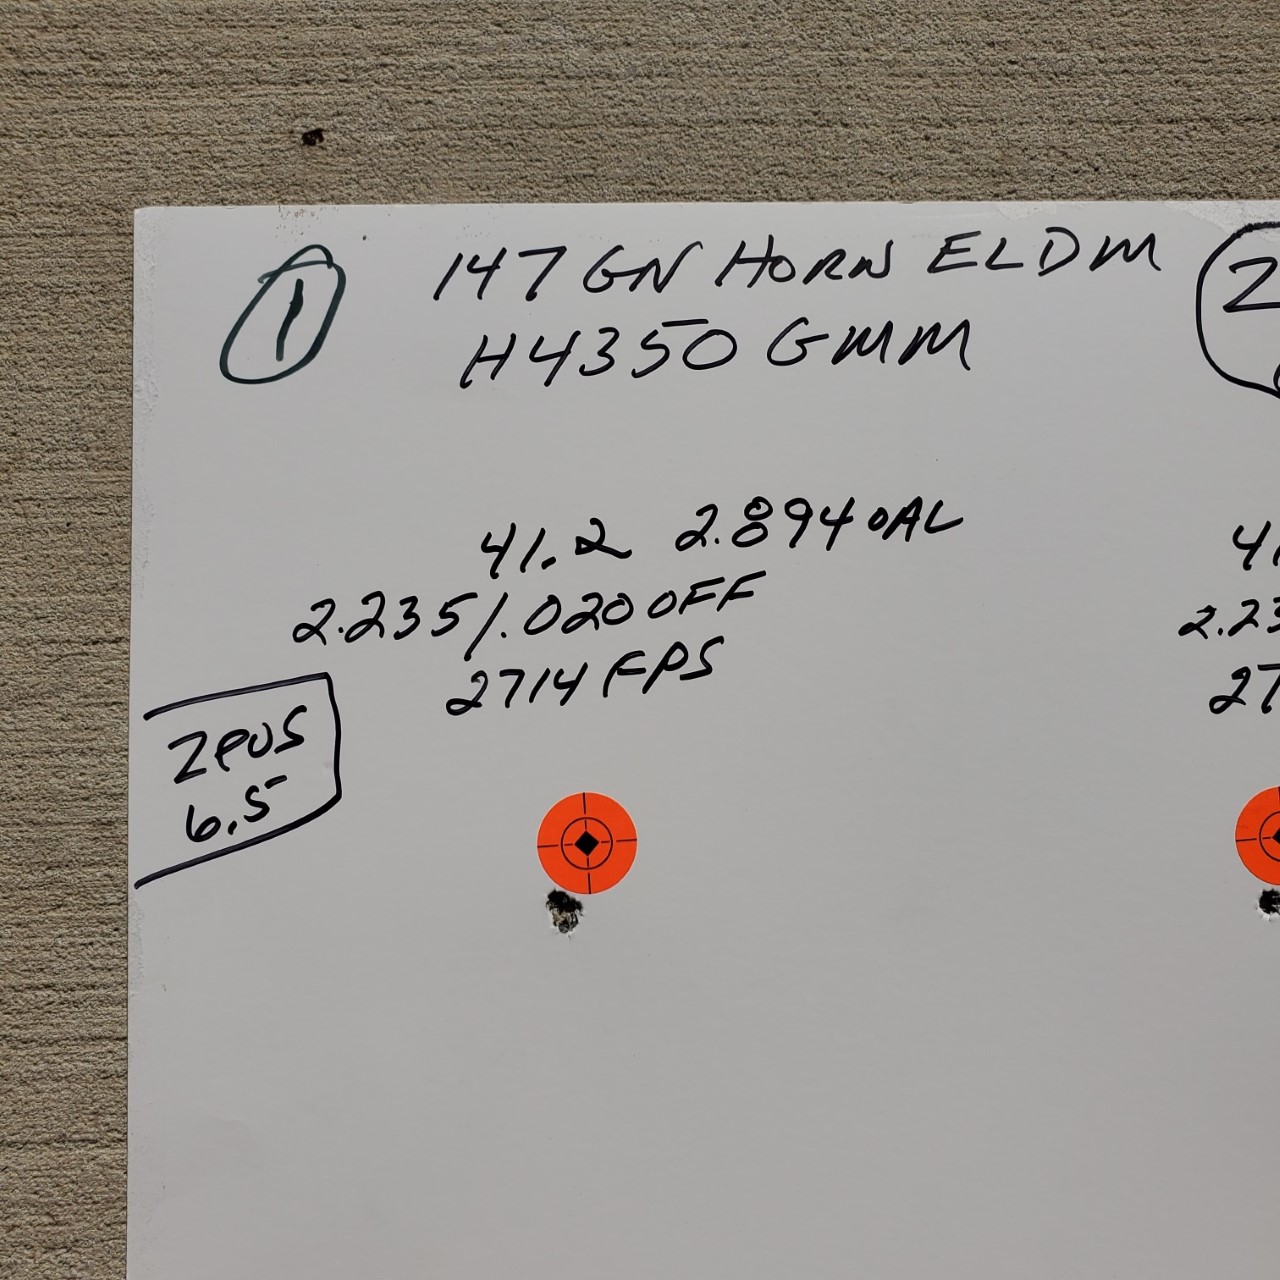 1
147 GN HORN ELDM
H4350 GMM
41.2 2.894 OAL
2.235/.020 OFF
2714 FPS
ZEUS
6.5
2
41
2.23
27